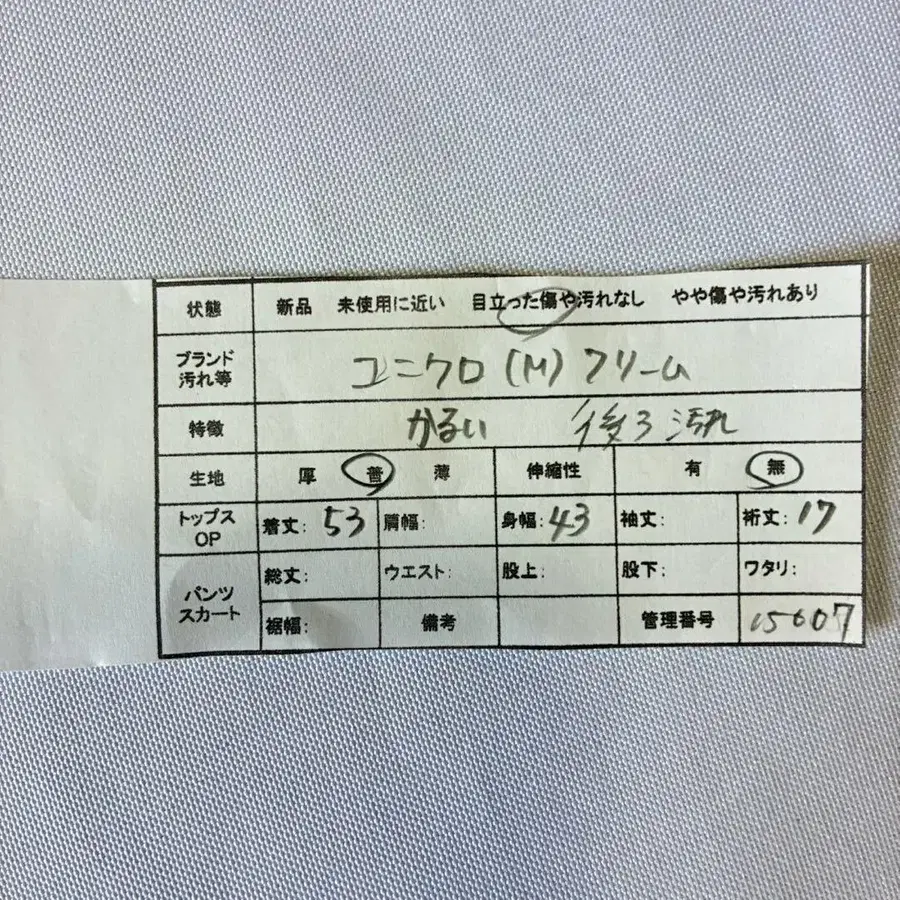 状態 新品 未使用に近い 目立った傷や汚れなし やや傷や汚れあり
ブランド
汚れ等 ユニクロ (M) クリーム
特徴 かるい 後ろ汚れ
生地 厚 普 薄 伸縮性 有 無
トップス
OP 着丈: 53 肩幅: 身幅: 43 袖丈: 裄丈: 17
パンツ
スカート 総丈: ウエスト: 股上: 股下: ワタリ:
裾幅: 備考 管理番号 15607